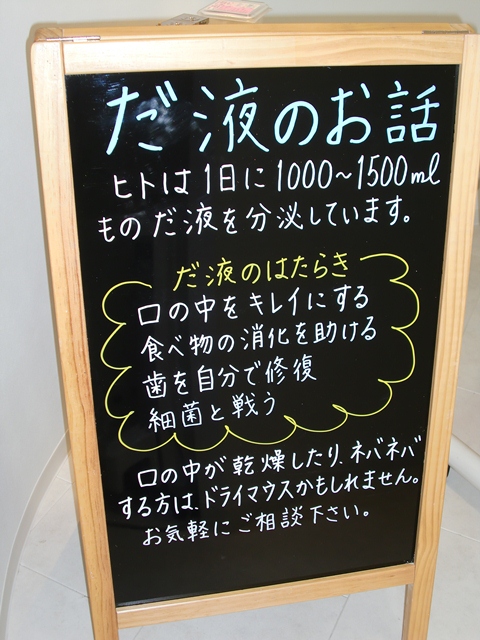 だ液のお話
ヒトは1日に1000～1500ml
ものだ液を分泌しています。
だ液のはたらき
口の中をキレイにする
食べ物の消化を助ける
歯を自分で修復
細菌と戦う
口の中が乾燥したり、ネバネバ
する方は、ドライマウスかもしれません。
お気軽にご相談下さい。